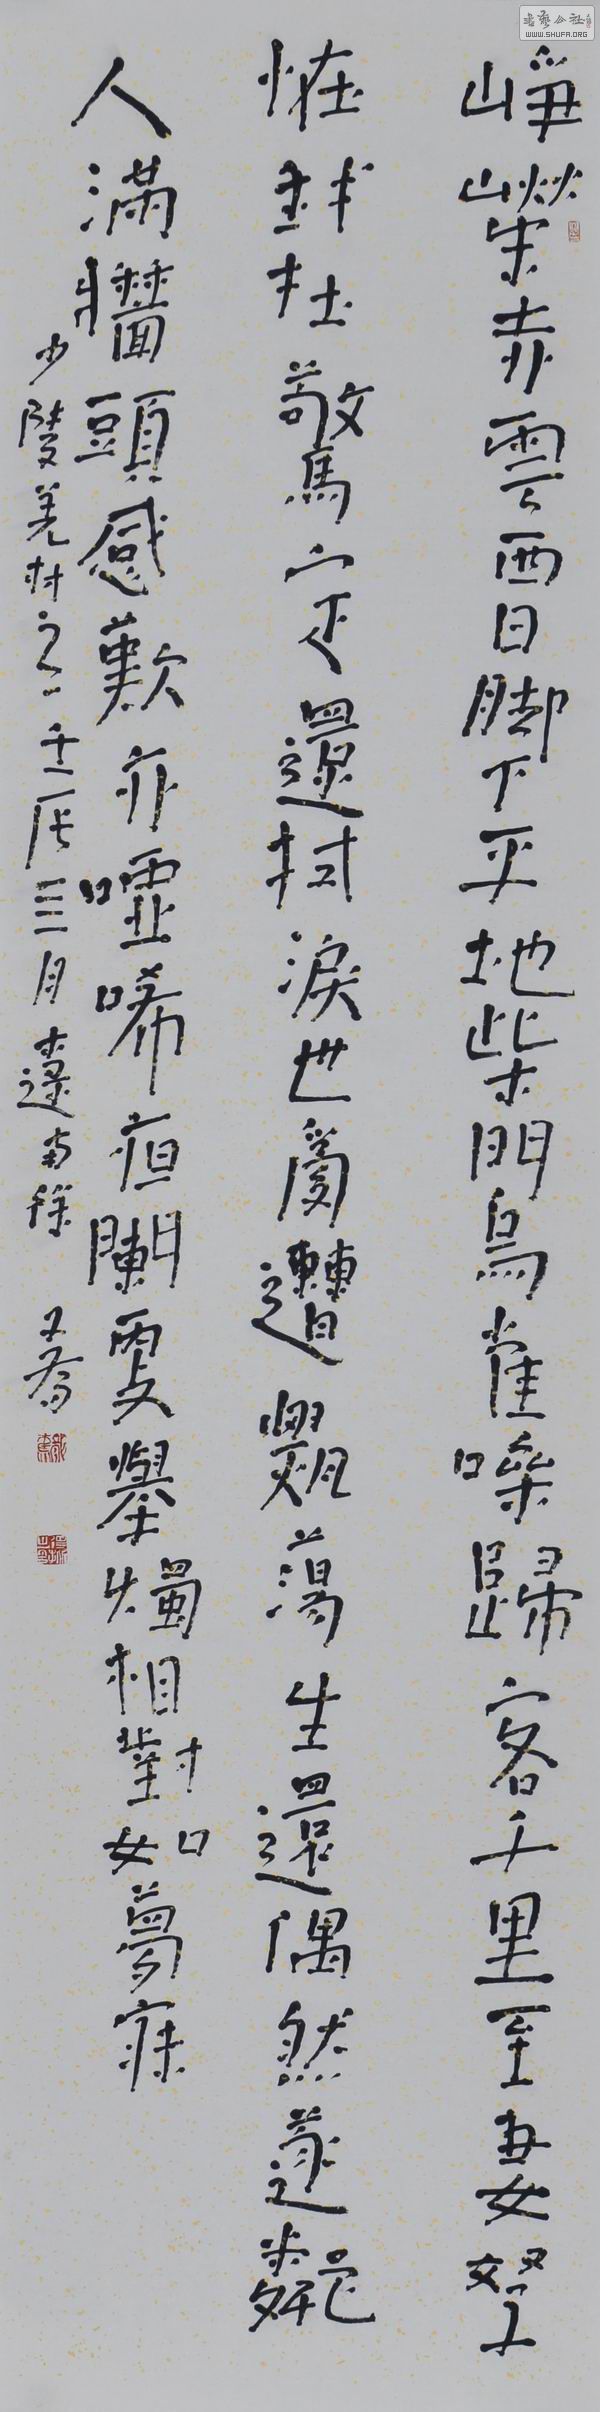 書藝公社
WWW.SHUFA.ORG
崢嶸赤雲西日脚下平地柴門鳥雀噪歸客千里至妻孥
恠我在驚定還拭淚世亂遭飄蕩生還偶然遂鄰
人滿牆頭感歎亦噓唏夜闌更舉燭相對如夢寐
少陵羌村之一壬辰三月